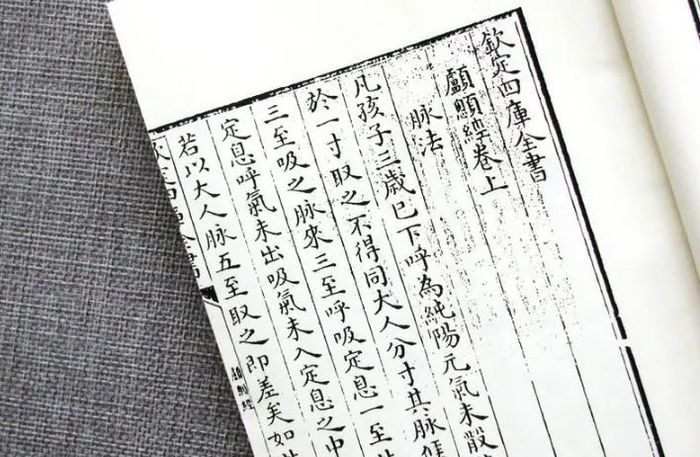 欽定四庫全書
顱顖經卷上
脉法
凡孩子三歳已下呼為純陽元氣未散
於一寸取之不得同大人分寸其脉候
三至吸之脉來三至呼吸定息一至
定息呼氣未出吸氣未入定息之中
若以大人脉五至取之即差矣如
欽定四庫全書
顱顖經